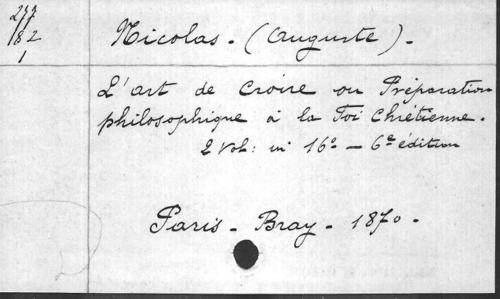 277
182
1
Nicolas. (Auguste).
L'art de croire ou Préparation
philosophique à la Foi Chrétienne.
2 vol: in 16º — 6e édition
Paris. Bray. 1870.